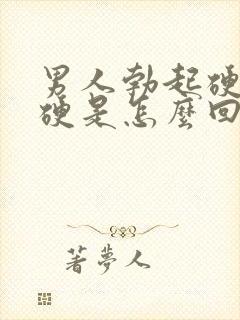 男人勃起硬
硬是怎麼回
著夢人